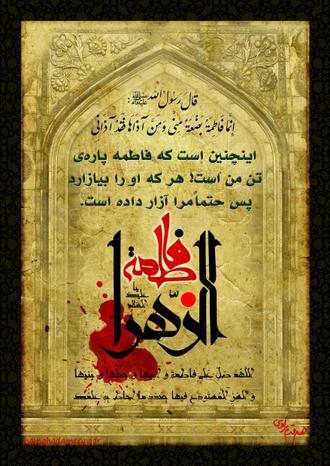 قال رسول الله ﷺ :
إنّما فاطِمَةُ بِضْعَةٌ مِنّی وَ مَن آذاها فَقَد آذانی
اینچنین است که فاطمه پاره‌ی
تن من است! هر که او را بیازارد
پس حتماً مرا آزار داده است.
فاطمة
الزهرا
علیک
السلام
اللهمّ صلّ علی فاطمة و ابیها و بعلها و بنیها
و السرّ المستودع فیها بعدد ما احاط به علمک